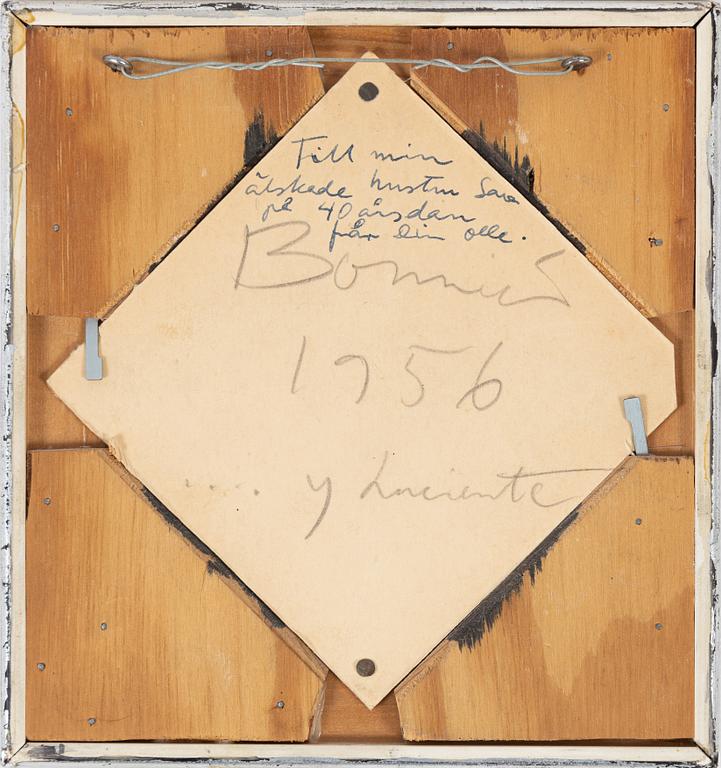 Till min
älskade hustru Sara
på 40 årsdan
från Din olle.
Bonniér
1956
.... y Luciente